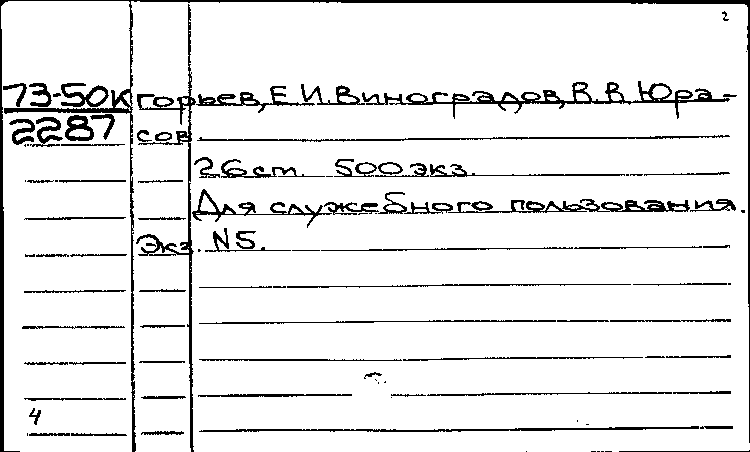 2
73-50к горьев, Е.И. Виноградов, В.В. Юра-
2287 сов.
26 ст. 500 экз.
Для служебного пользования.
Экз. N5.
4